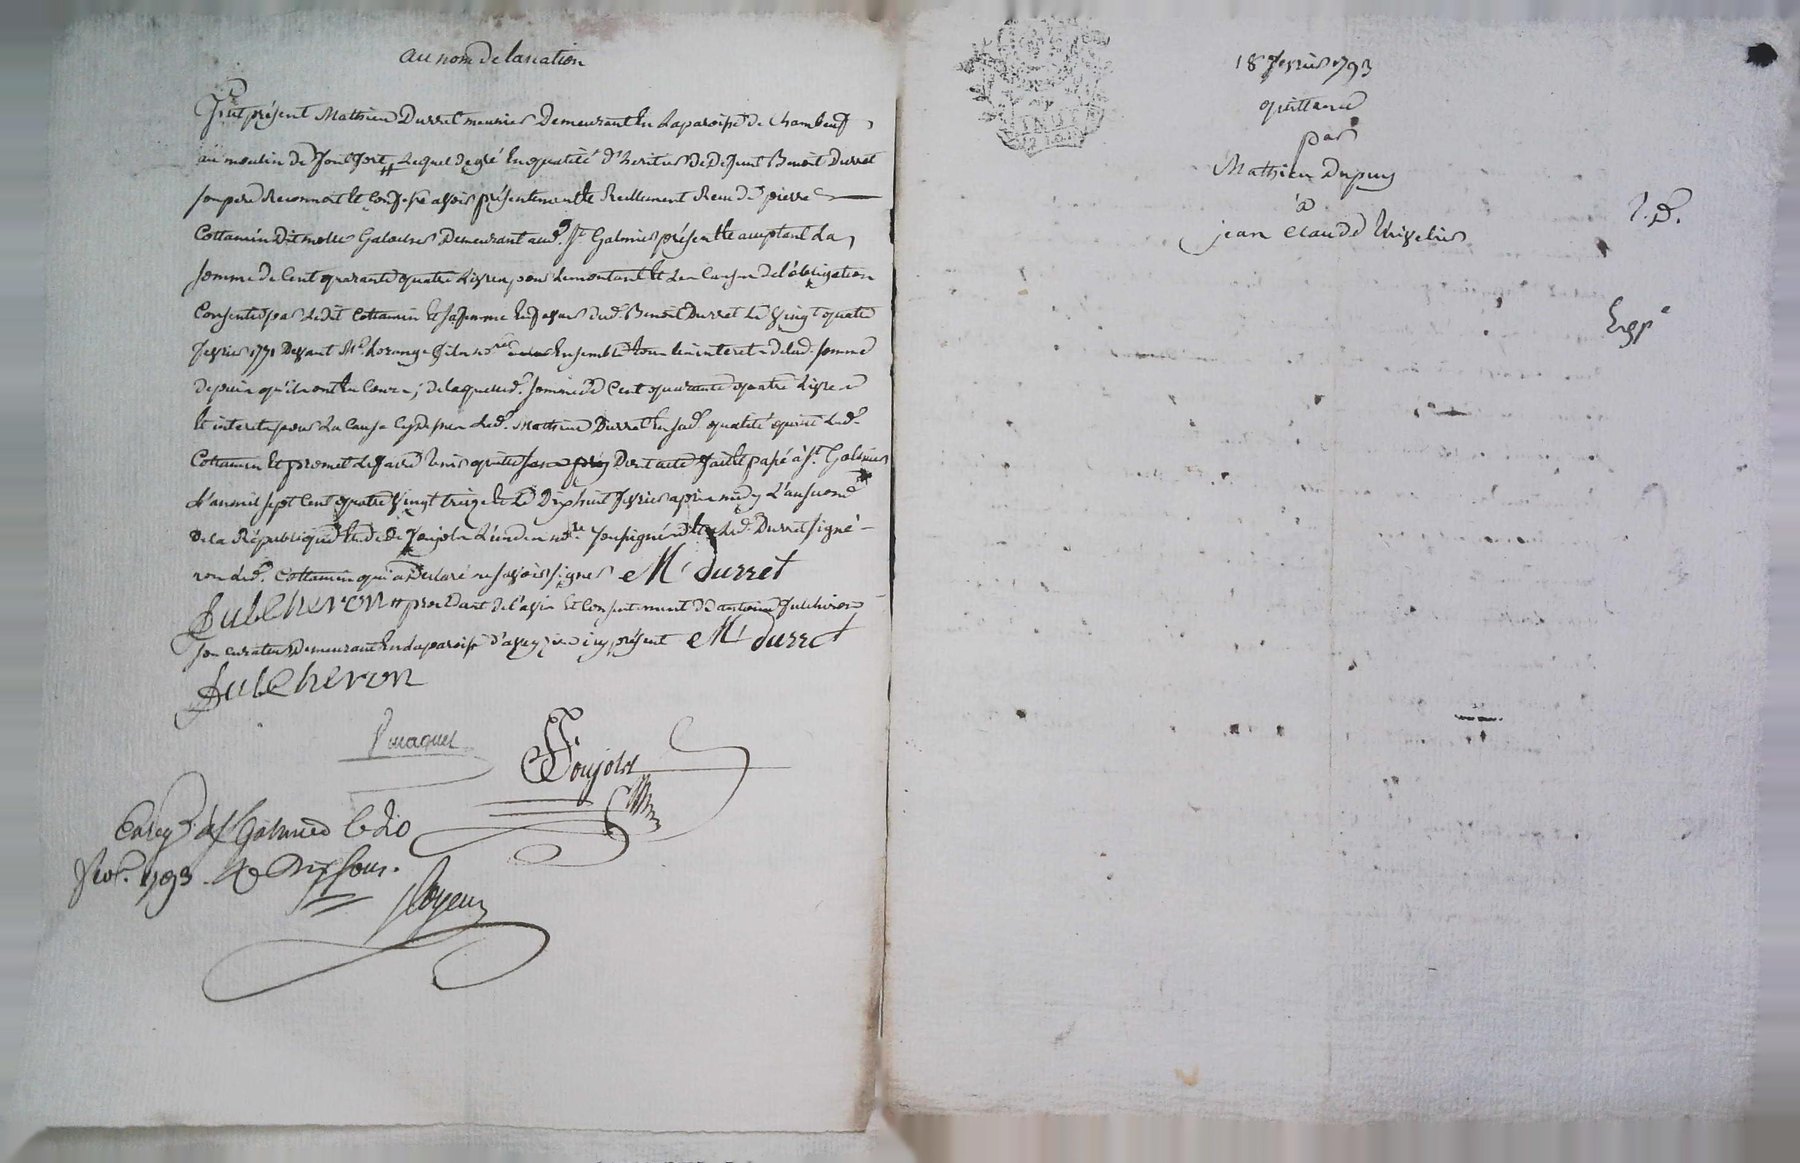 au nom de la nation
Fut présent Mathieu Durret meunier Demeurant En La paroisse de Chambeuf
au moulin de Fontfort Lequel de gré En qualité d'heritier De Defunt Benoit Durret
son pere Reconnoit Et Confesse avoir présentement Et Reellement Recu de pierre
Cottamin Dit Galochier Demeurant aud. St. Galmier présent Et acceptant La
somme de Cent quarante quatre Livres pour Le montant Et Les Causes de l'obligation
Consentie par Ledit Cottamin Et sa femme En faveur dud. Benoit Durret Le Vingt quatre
fevrier 1771 Devant Me. Ensemble tous Les interets de lad. somme
depuis qu'ils ont En Cours, de laquelle d. somme de Cent quarante quatre Livres
Et interets pour La Cause Cy dessus Led. Mathieu Durret En sad. qualité quitte Led.
Cottamin Et promet Le faire tenir quitte Dont acte fait Et passé à St. Galmier
L'an mil sept Cent quatre Vingt treize Et Le Dix huit fevrier après midy L'an second
De la République soussigné Led. Durret signé
non Led. Cottamin qui a Declaré ne savoir signer M Durret
Dulcheron procedant de l'avis Et Consentement de antoine Dulcheron
son curateur Demeurant En La paroisse d'aveyzieu icy présent M Durret
Dulcheron
Poujols
Enreg. à St Galmier le 20
fév. 1793. R Dix sous.
18 fevrier 1793
quittance
par
Mathieu Dupuy
à
jean Claude
Exp.e